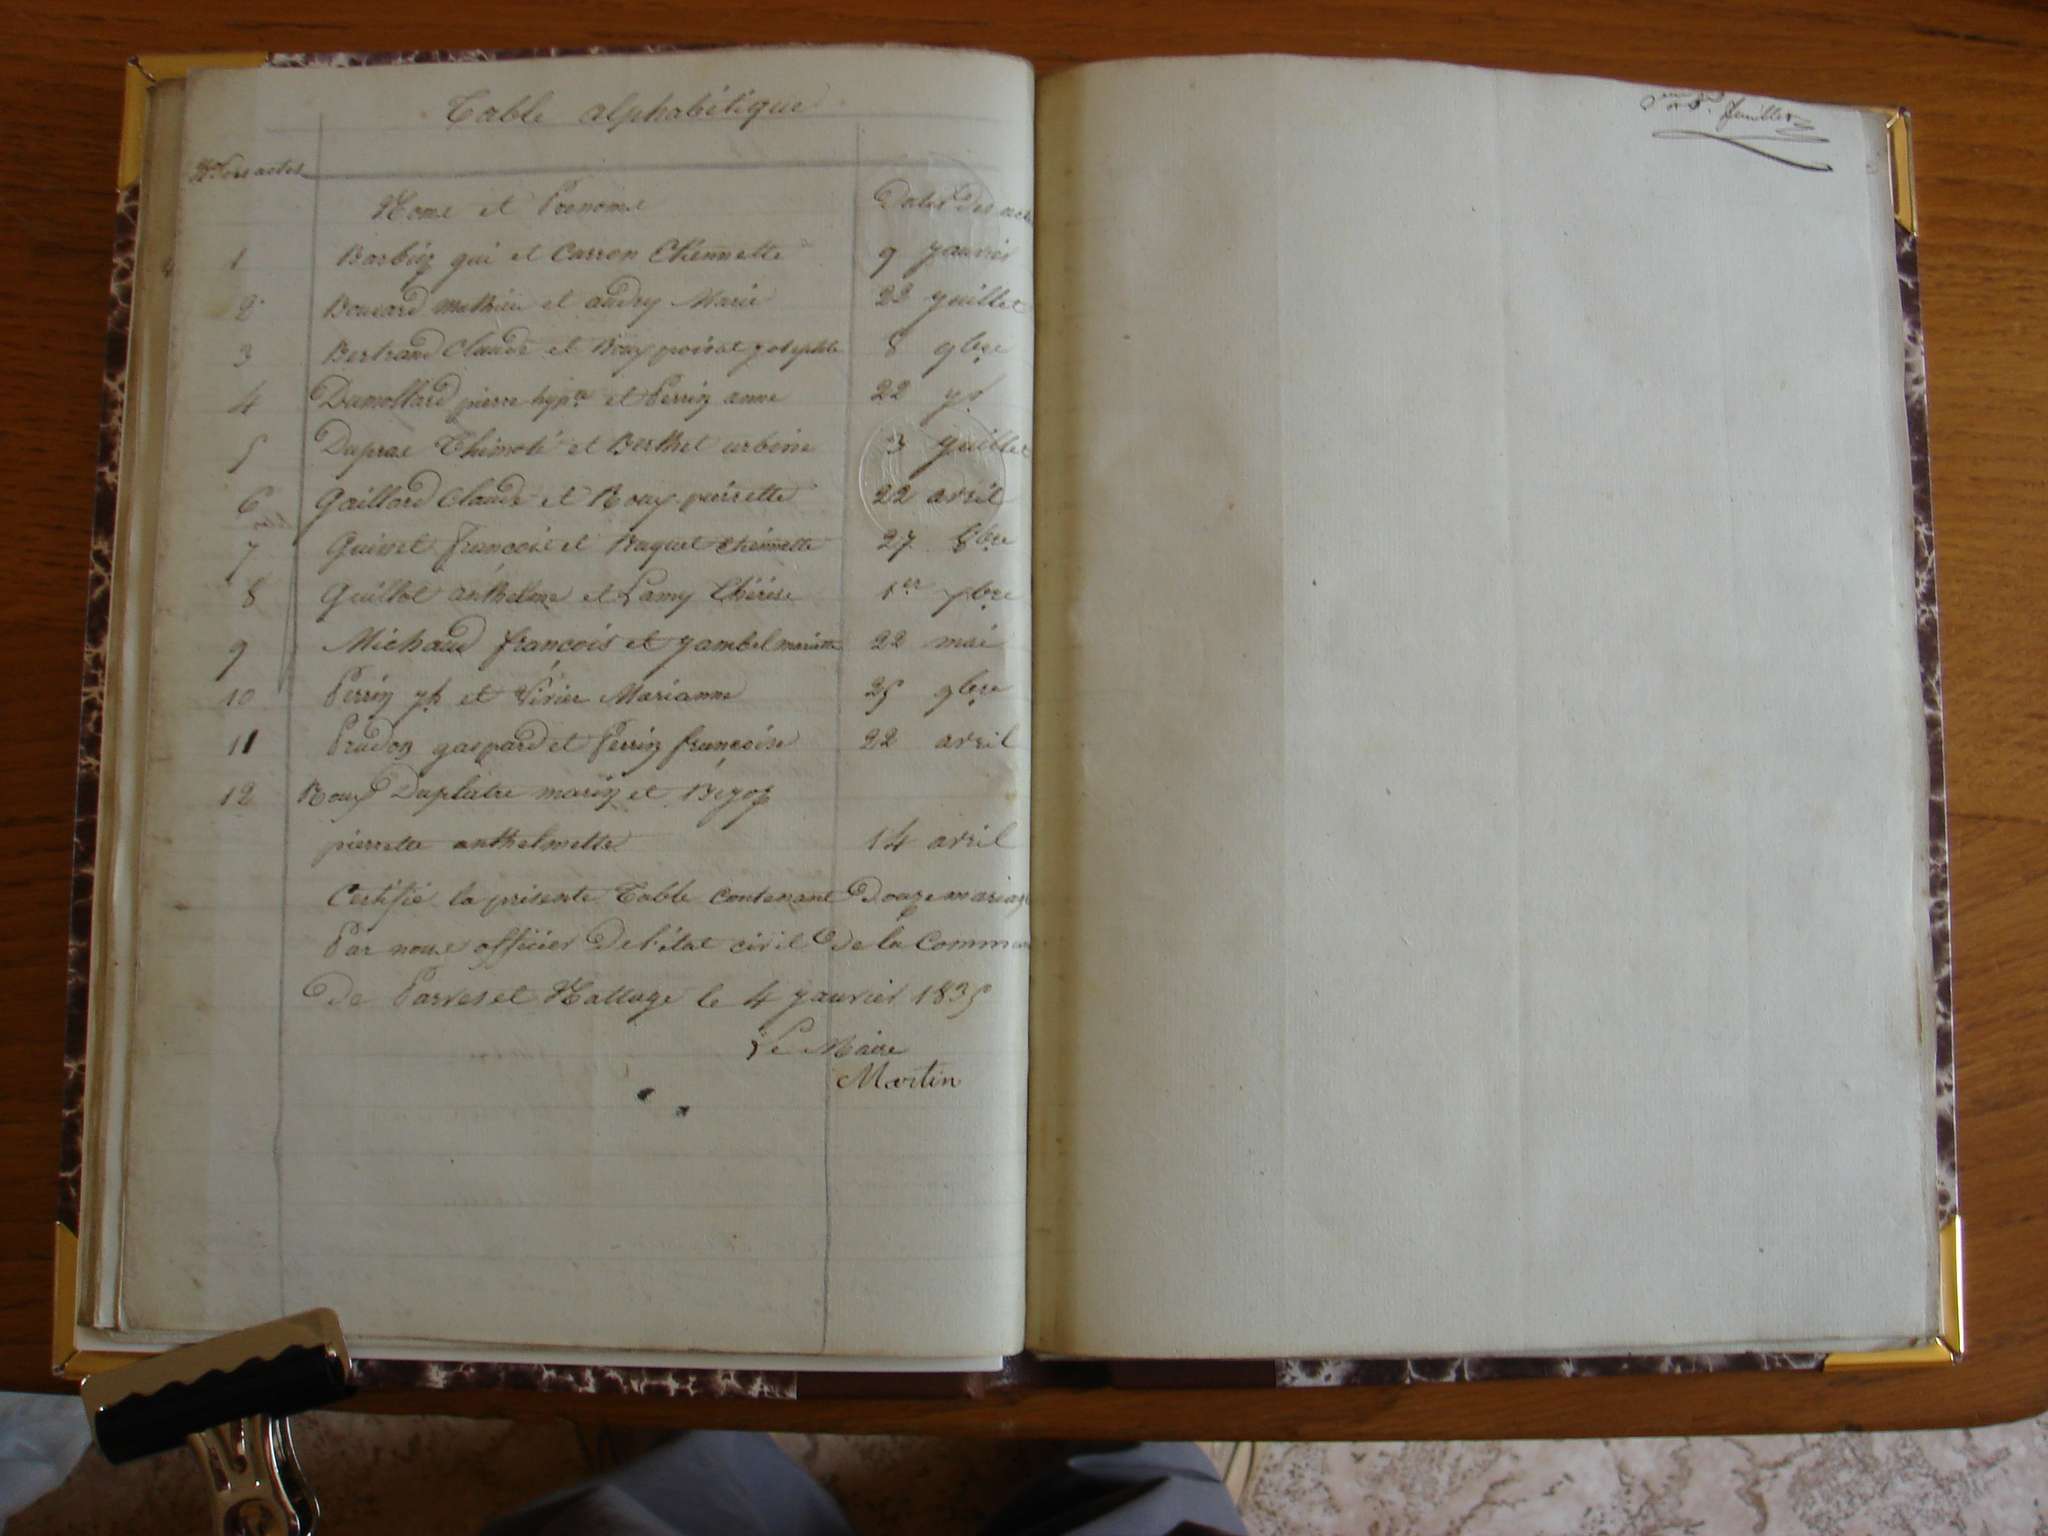 Table alphabétique
Nos des actes
Noms et Prenoms Dates des actes
1 Barbin gui et Carron Ethiennette 9 janvier
2 Boucard mathieu et audry Marie 23 juillet
3 Bertrand Claude et Roux poirat josephte 8 9bre
4 Dumollard pierre hypte et Perrin anne 22 do
5 Duprac Thimoté et Berthet urbine 3 juillet
6 Gaillard Claude et Roux pierrette 22 avril
7 Guivet françois et Buquet Ethiennette 27 8bre
8 Guillot anthelme et Lamy Thérèse 1er 7bre
9 Michaud françois et jambel mariette 22 mai
10 Perrin jh et Vivier Marianne 25 9bre
11 Prudon gaspard et Perrin françoise 22 avril
12 Roux Duplatre marin et Bigoz
pierrette anthelmette 14 avril
Certifié la présente Table contenant Douze mariag
Par nous officier De l'état civil de la Commune
De Parves et Nattage le 4 janvier 1835
Le Maire
Martin
feuillet